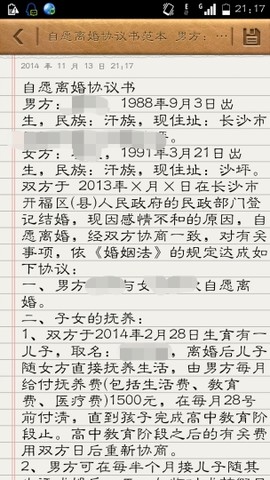 21:17
自愿离婚协议书范本 男方：…
2014 年 11 月 13 日 21:17
自愿离婚协议书
男方：   1988年9月3日出
生，民族：汗族，现住址：长沙市
坪。
女方：   ，1991年3月21日出
生，民族：汗族，现住址：沙坪。
双方于 2013年×月×日在长沙市
开福区(县)人民政府的民政部门登
记结婚，现因感情不和的原因，自
愿离婚，经双方协商一致，对有关
事项，依《婚姻法》的规定达成如
下协议：
一、男方   与女   自愿离
婚。
二、子女的抚养：
1、双方于2014年2月28日生育有一
儿子，取名：   ，离婚后儿子
随女方直接抚养生活，由男方每月
给付抚养费(包括生活费、教育
费、医疗费)1500元，在每月28号
前付清，直到孩子完成高中教育阶
段止。高中教育阶段之后的有关费
用双方日后重新协商。
2、男方可在每半个月接儿子随其